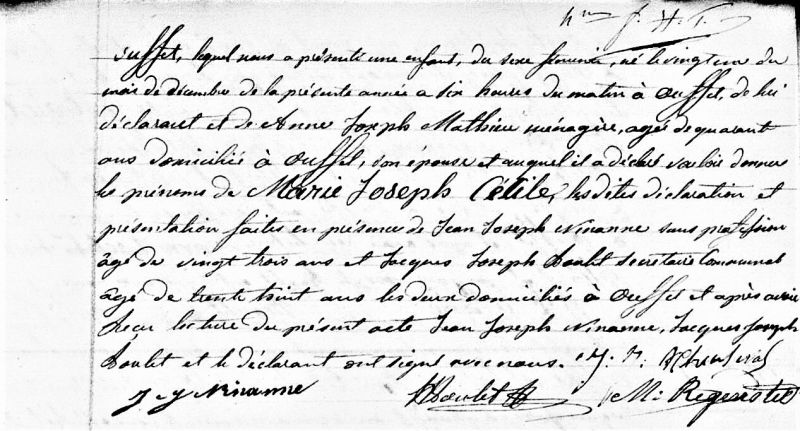 ouffet, lequel nous a présenté une enfant, du sexe féminin, né le vingt un du
mois de décembre de la présente année a six heures du matin à ouffet, de lui
déclarant et de Anne Joseph Mathieu ménagère, agée de quarant
ans domiciliée à ouffet, son épouse et auquel il a déclaré vouloir donner
les prénoms de Marie Joseph Cécile, les dites déclaration et
présentation faites en présence de Jean Joseph Ninanne sans profession
âgé de vingt trois ans et Jacques Joseph Boulet secrétaire Communal
âgé de trente huit ans les deux domiciliés à ouffet et après avoir
reçu lecture du présent acte Jean Joseph Ninanne, Jacques Joseph
Boulet et le déclarant ont signé avec nous.
J. J. Ninanne
Boulet